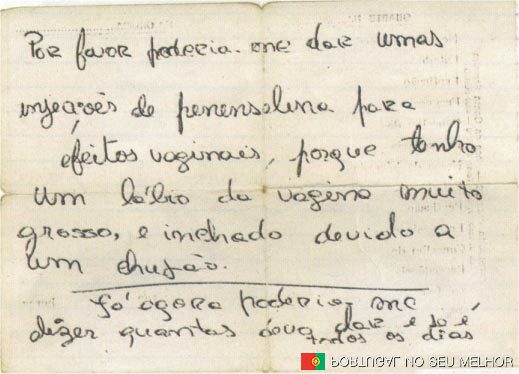 Por favor poderia-me dar umas
de penenselina para
éfeitos vaginais, porque tenho
um lábio da vagina muito
grosso, e inchado devido a
um chupão.
Já agora poderia-me
dizer quantas devo dar e se é
todos os dias
PORTUGAL NO SEU MELHOR